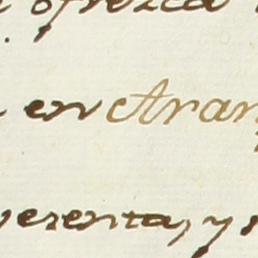 ofrezca
en Aran
esenta, y